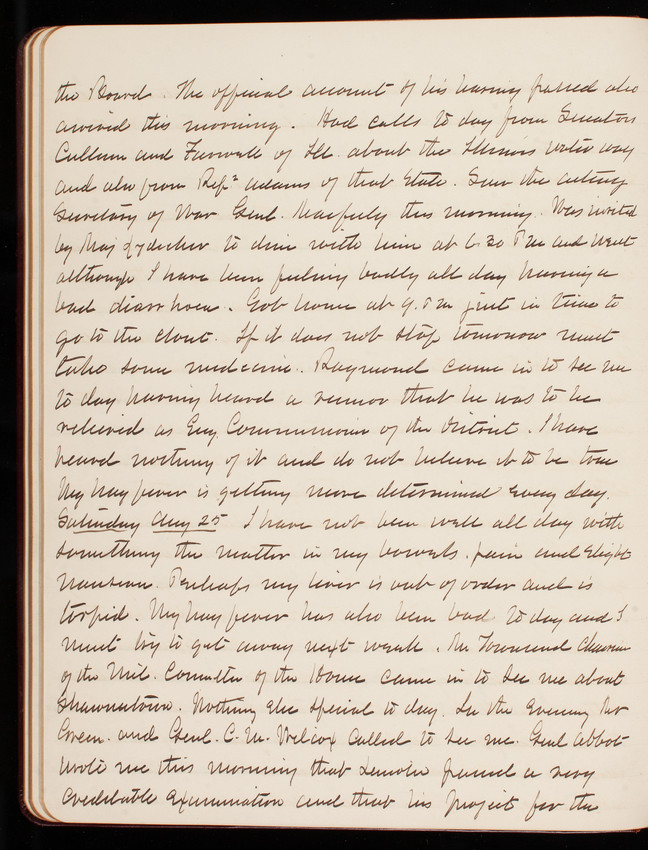 the Board. The official account of his having passed also
arrived this morning. Had calls to day from Senators
Cullum and Farwell of Ill. about the Illinois water way
and also from Rep. Adams of that State. Saw the acting
Secretary of War Genl. Macfeely this morning. Was invited
by Maj to dine with him at 6.30 PM and went
although I have been feeling badly all day having a
bad diarrhoea. Got home at 9. PM just in time to
go to the closet. If it does not stop tomorrow must
take some medicine. Raymond came in to see me
to day having heard a rumor that he was to be
relieved as Eng. Commissioner of the District. I have
heard nothing of it and do not believe it to be true
My hay fever is getting more determined every day.
Saturday Aug 25 I have not been well all day with
something the matter in my bowels. pain and slight
nausea. Perhaps my liver is out of order and is
torpid. My hay fever has also been bad to day and I
must try to get away next week. Mr Townsend Chairman
of the Mil. Committee of the House came in to see me about
Shawneetown. Nothing else special to day. In the evening Mr
Green. and Genl. C. M. Wilcox called to see me. Genl Abbot
wrote me this morning that passed a very
creditable examination and that his project for the